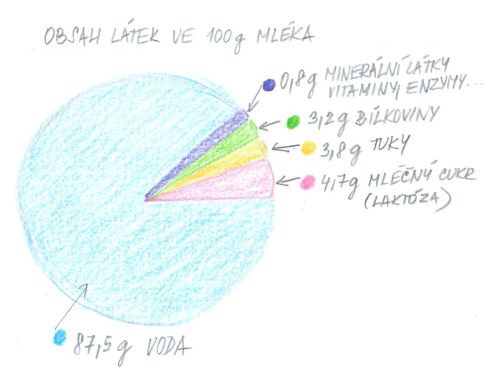 OBSAH LÁTEK VE 100g MLÉKA
0,8g MINERÁLNÍ LÁTKY
VITAMINY, ENZYMY...
3,2g BÍLKOVINY
3,8g TUKY
4,7g MLÉČNÝ CUKR
(LAKTÓZA)
87,5g VODA